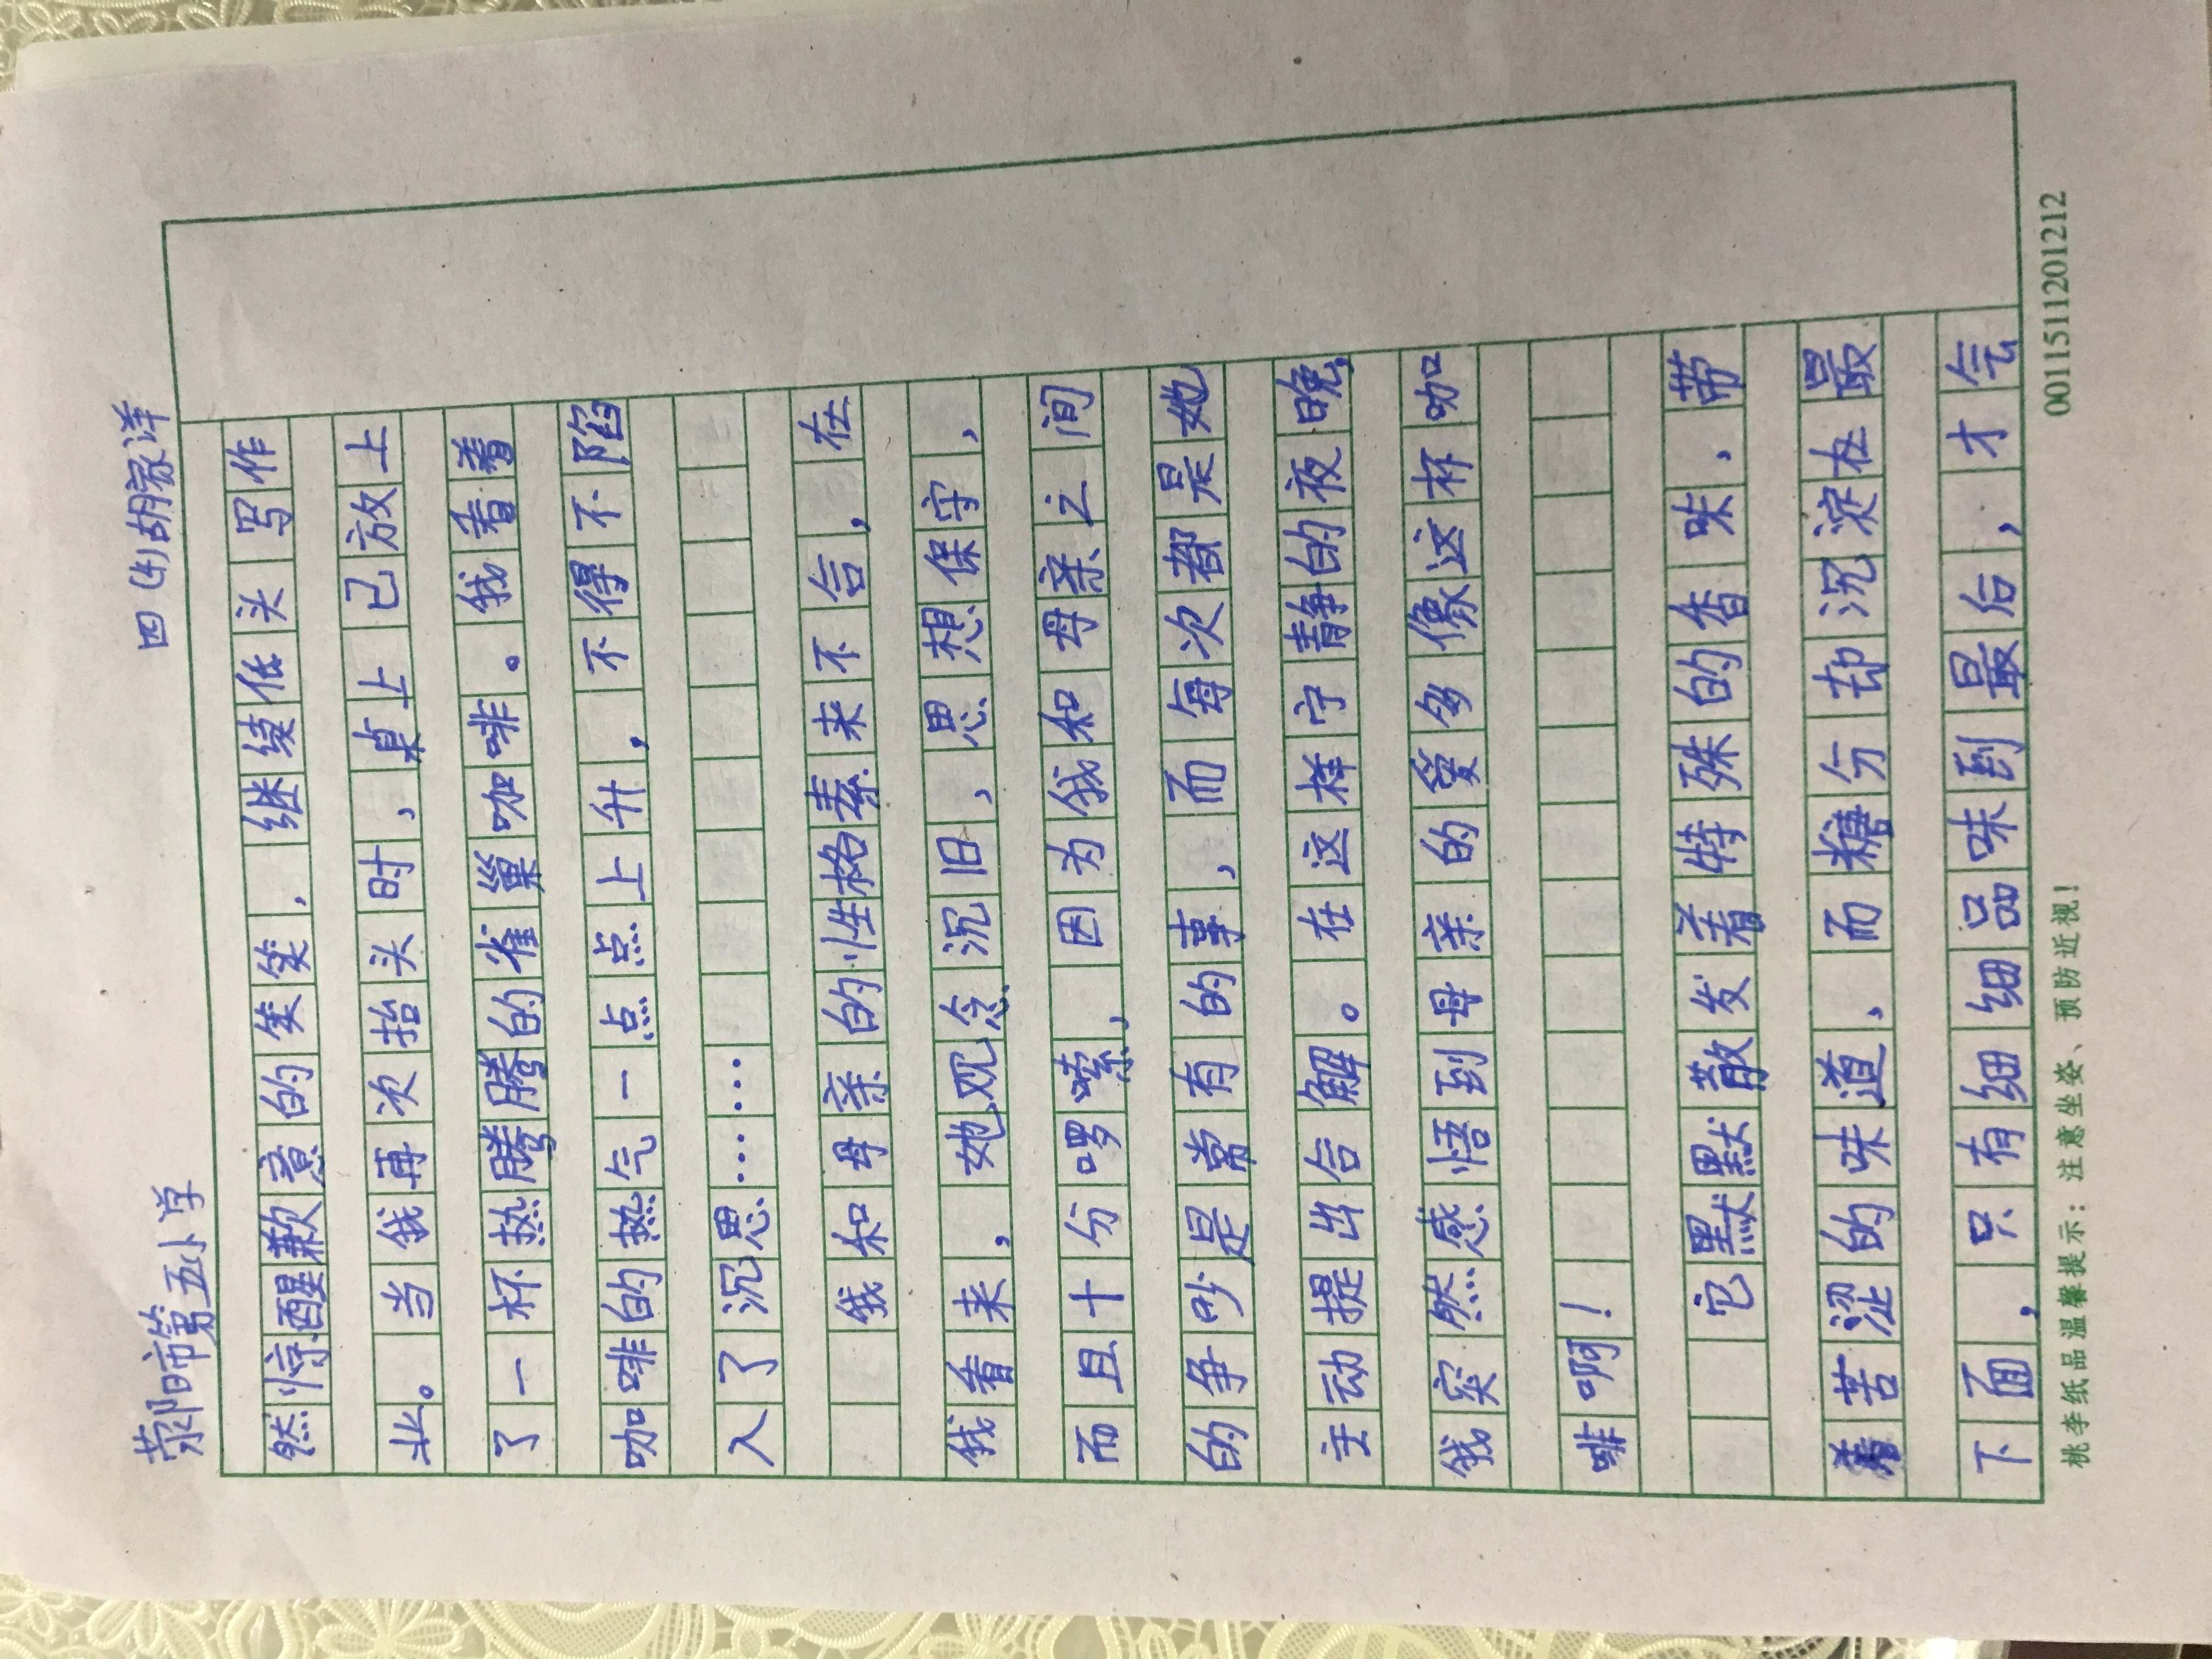 荥阳市第五小学 四(4)胡家洋
然惊醒歉意的笑笑，继续低头写作
业。当我再次抬头时，桌上已放上
了一杯热腾腾的雀巢咖啡。我看着
咖啡的热气一点点上升，不得不陷
入了沉思……
我和母亲的性格素来不合，在
我看来，她观念沉旧，思想保守，
而且十分啰嗦，因为我和母亲之间
的争吵是常有的事，而每次都是她
主动提出合解。在这样宁静的夜晚，
我突然感悟到母亲的爱多像这杯咖
啡啊！
它默默散发着特殊的香味，带
着苦涩的味道，而糖分却沉淀在最
下面，只有细细品味到最后，才会
桃李纸品温馨提示：注意坐姿、预防近视！ 001151120121​2